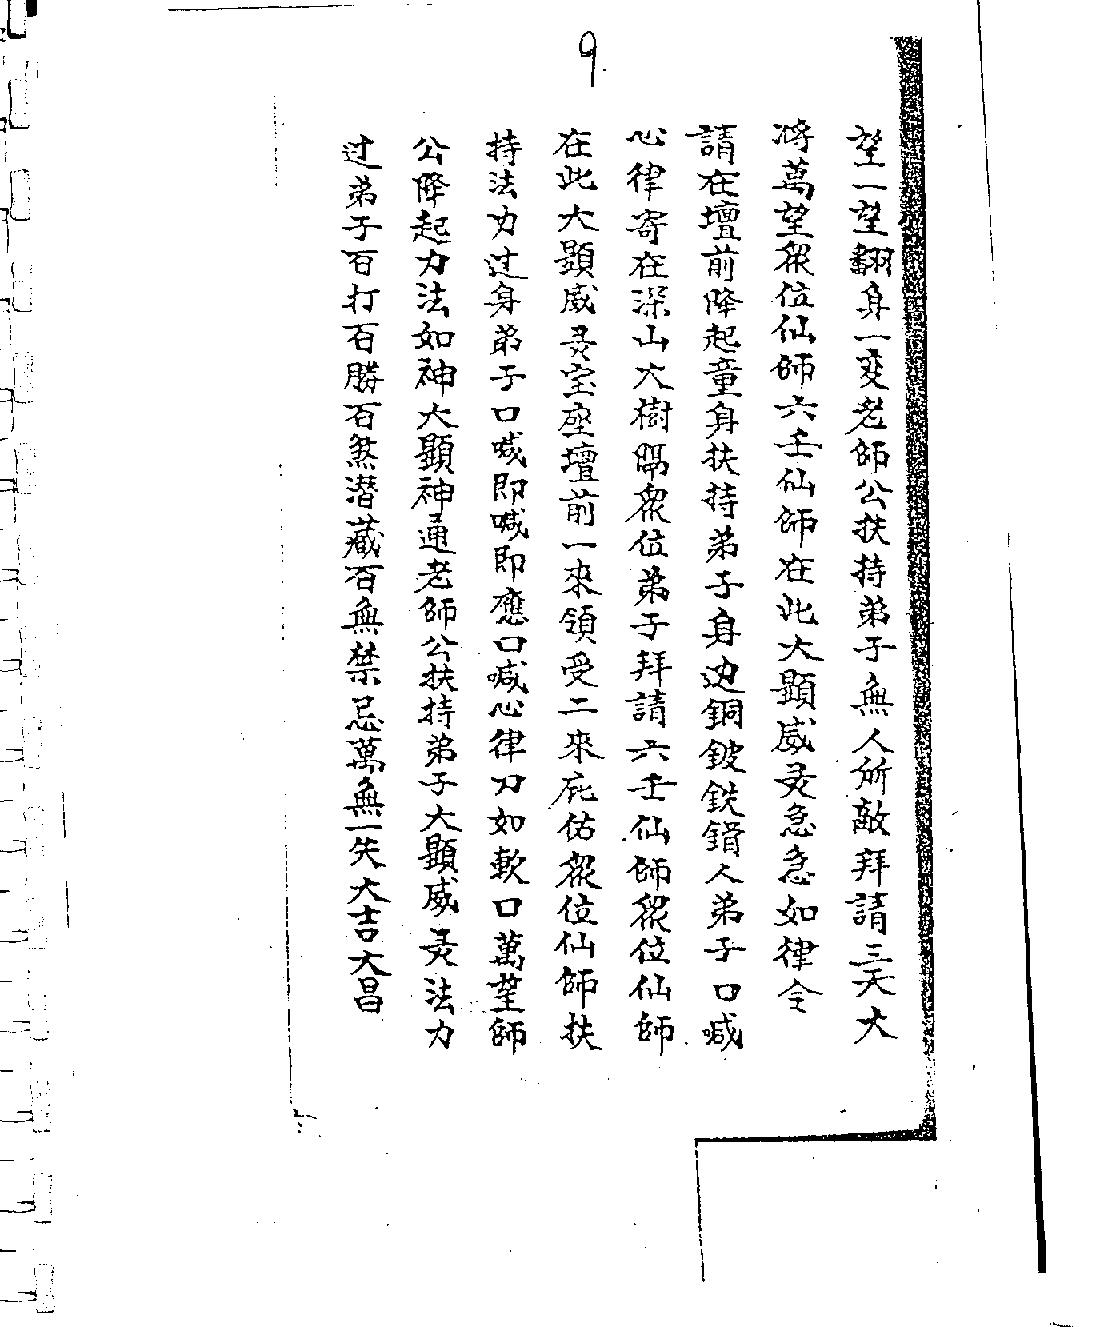 9
望一望翻身一变老師公扶持弟子無人所敵拜請三天大
将萬望衆位仙師六壬仙師在此大顕威灵急急如律令
請在壇前降起童身扶持弟子身边銅鈹銑鎖人弟子口喊
心律寄在深山大樹隔衆位弟子拜請六壬仙師衆位仙師
在此大顕威灵宝座壇前一來領受二來庇佑衆位仙師扶
持法力过身弟子口喊即喊即應口喊心律刀如軟口萬望師
公降起力法如神大顕神通老師公扶持弟子大顕威灵法力
过弟子百打百勝百煞潜藏百無禁忌萬無一失大吉大昌